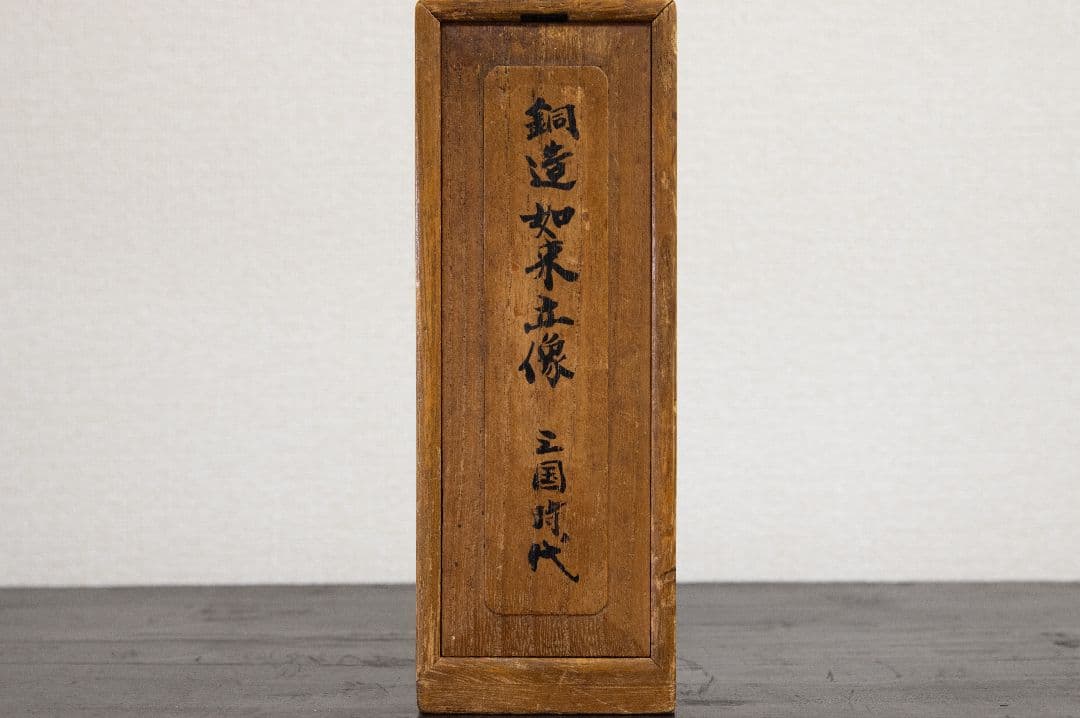 銅造如来立像 三国時代